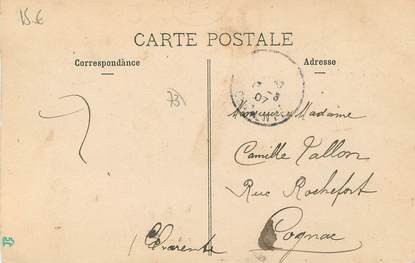 15 €
CARTE POSTALE
Correspondance
Adresse
73
07
Monsieur & Madame
Camille Vallon
Rue Rochefort
Cognac
Charente